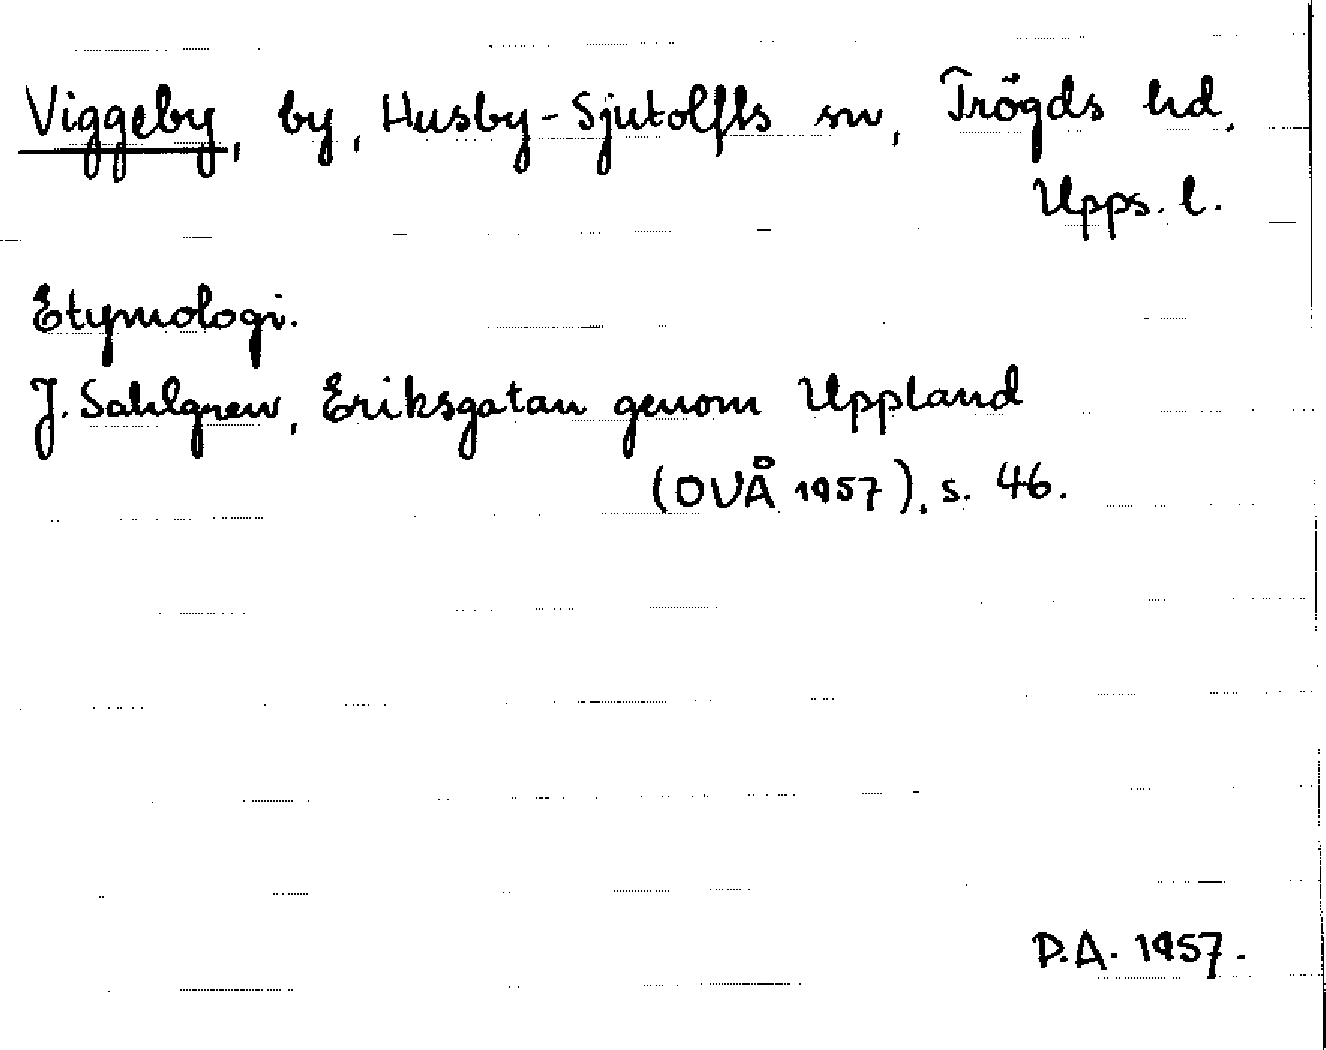 Viggeby, by, Husby-Sjutolfts sn, Trögds hd.
Upps. l.
Etymologi.
J. Sahlgren, Eriksgatan genom Uppland
(OUÅ 1957), s. 46.
P.A. 1957.